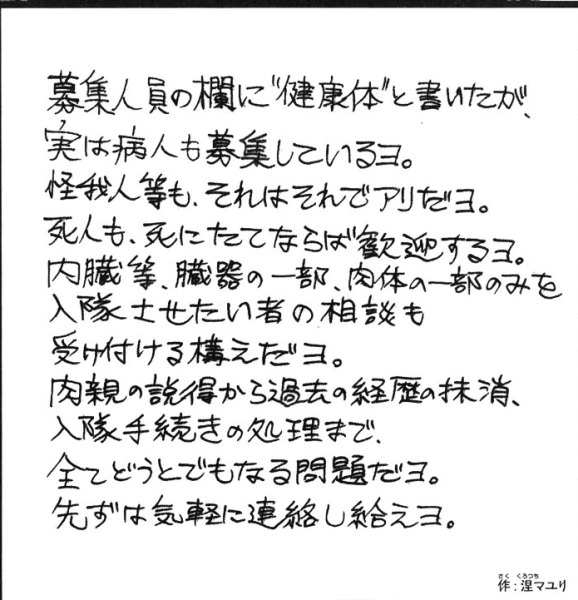 募集人員の欄に"健康体"と書いたが、
実は病人も募集しているヨ。
怪我人等も、それはそれでアリだヨ。
死人も、死にたてならば歓迎するヨ。
内臓等、臓器の一部、肉体の一部のみを
入隊させたい者の相談も
受け付ける構えだヨ。
肉親の説得から過去の経歴の抹消、
入隊手続きの処理まで、
全てどうとでもなる問題だヨ。
先ずは気軽に連絡し給えヨ。
さく くろつち
作：涅マユリ